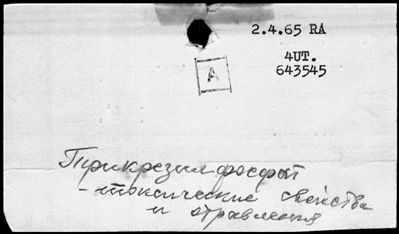 2.4.65 RA
4UT.
643545
A
Трикрезилфосфат
- токсические свойства
и отравления